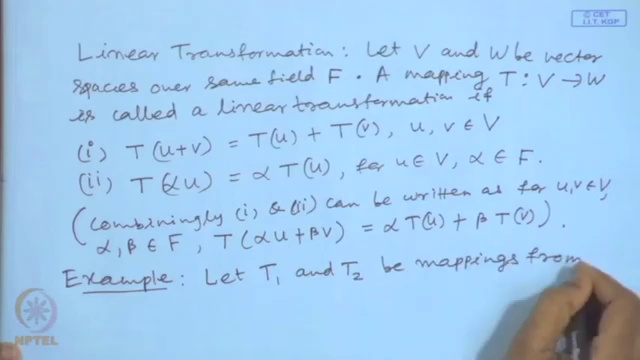 © CET
I.I.T. KGP
Linear Transformation : Let V and W be vector
spaces over same field F. A mapping T : V → W
is called a linear transformation if
(i) T(u+v) = T(u) + T(v), u, v ∈ V
(ii) T(αu) = α T(u), for u ∈ V, α ∈ F.
(Combiningly (i) & (ii) can be written as for u, v ∈ V,
α, β ∈ F, T(αu+βv) = α T(u) + β T(v)).
Example : Let T₁ and T₂ be mappings from
NPTEL